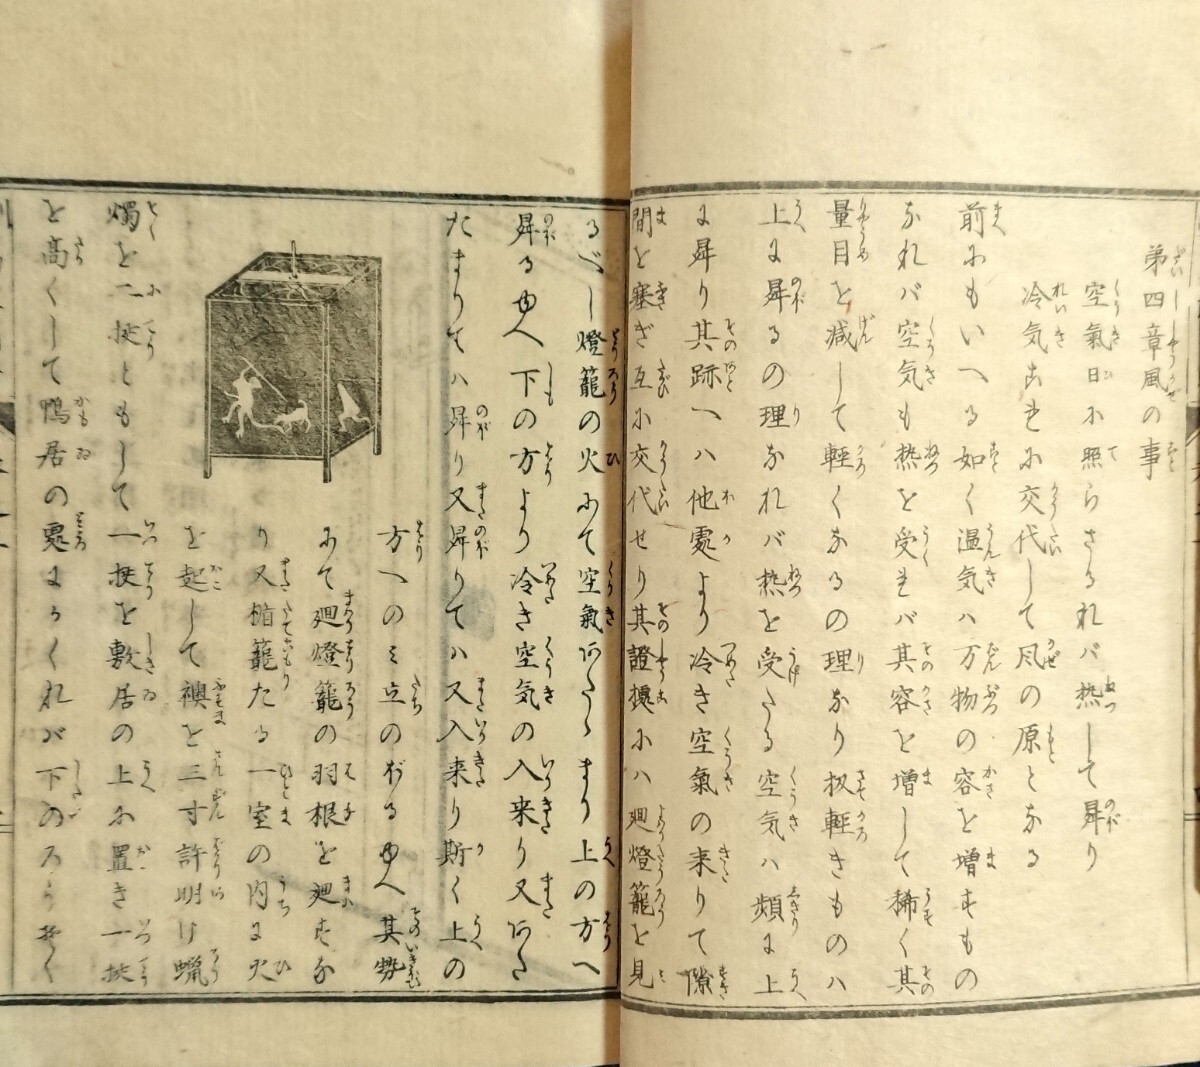 第四章風の事
空氣日に照らさるれバ熱して昇り
冷気これに交代して風の原となる
前にもいへる如く温気ハ万物の容を増すもの
なれバ空気も热を受れバ其容を増して稀く其
量目を減して軽くなるの理なり扨軽きものハ
上に昇るの理なれバ热を受たる空気ハ頻に上
に昇り其跡へハ他處より冷き空氣の来りて隙
間を塞ぎ互に交代せり其證據にハ廻燈籠を見
るべし燈籠の火にて空氣あたゝまり上の方へ
昇るゆへ下の方より冷き空気の入来り又あた
たまりてハ昇り又昇りてハ又入来り斯く上の
方へのミ立のぼるゆへ其勢
にて廻燈籠の羽根を廻すな
り又楯籠たる一室の内に火
を起して襖を三寸許明け蝋
燭を二挺ともして一挺を敷居の上に置き一挺
を高くして鴨居の處にかくれバ下のろうそく